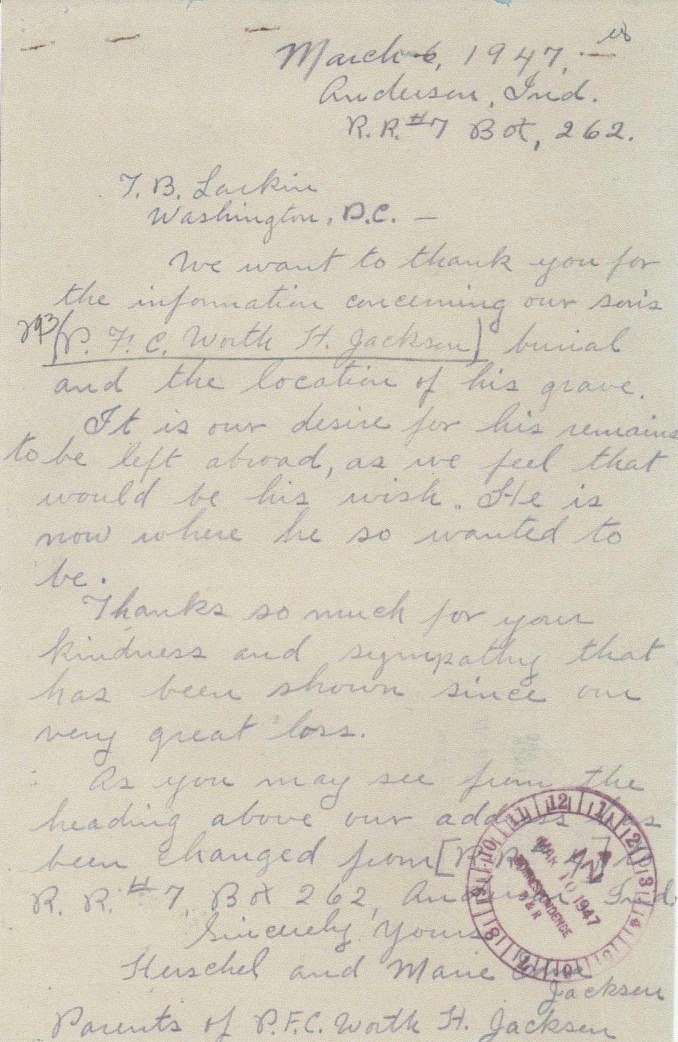 March 6, 1947,
Anderson, Ind.
R.R.#7 Box, 262.
T. B. Larkin
Washington, D.C. —
We want to thank you for
the information concerning our son's
293 (P. F. C. Worth H. Jackson) burial
and the location of his grave.
It is our desire for his remains
to be left abroad, as we feel that
would be his wish. He is
now where he so wanted to
be.
Thanks so much for your
kindness and sympathy that
has been shown since our
very great loss.
As you may see from the
heading above our address has
been changed from [R.R. to
R. R. #7, Box 262, Anderson Ind.
Sincerely Yours
Herschel and Marie
Jackson
Parents of P.F.C. Worth H. Jackson
12 1 2 3 4 5 6 7 8 9 10 11
MAR 10 1947
CORRESPONDENCE
P & R